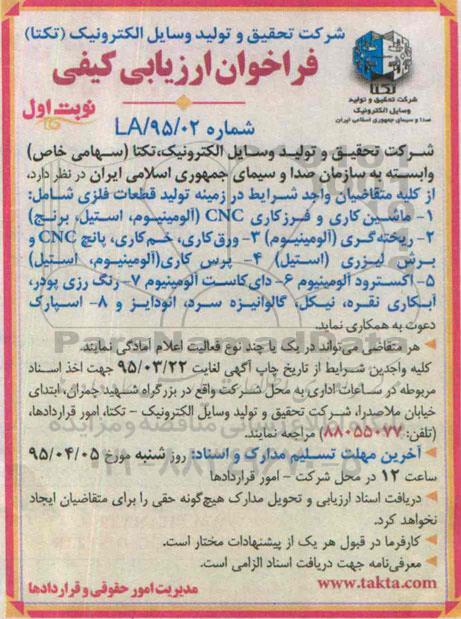 شرکت تحقیق و تولید وسایل الکترونیک (تکتا)
فراخوان ارزیابی کیفی
نوبت اول
تکتا
شرکت تحقیق و تولید
وسایل الکترونیک
صدا و سیمای جمهوری اسلامی ایران
شماره LA/۹۵/۰۲
شرکت تحقیق و تولید وسایل الکترونیک،تکتا (سهامی خاص)
وابسته به سازمان صدا و سیمای جمهوری اسلامی ایران در نظر دارد،
از کلیه متقاضیان واجد شرایط در زمینه تولید قطعات فلزی شامل:
۱- ماشین کاری و فرزکاری CNC (آلومینیوم، استیل، برنج)
۲- ریخته‌گری (آلومینیوم) ۳- ورق‌کاری، خم‌کاری، پانچ CNC و
برش لیزری (استیل) ۴- پرس کاری(آلومینیوم، استیل)
۵- اکسترود آلومینیوم ۶- دای‌کاست آلومینیوم ۷- رنگ رزی پودر،
آبکاری نقره، نیکل، گالوانیزه سرد، آنودایز و ۸- اسپارک
دعوت به همکاری نماید.
هر متقاضی می‌تواند در یک یا چند نوع فعالیت اعلام آمادگی نمایند.
کلیه واجدین شرایط از تاریخ چاپ آگهی لغایت ۹۵/۰۳/۲۲ جهت اخذ اسناد
مربوطه در ساعات اداری به محل شرکت واقع در بزرگراه شهید چمران، ابتدای
خیابان ملاصدرا، شرکت تحقیق و تولید وسایل الکترونیک - تکتا، امور قراردادها،
(تلفن: ۸۸۰۵۵۰۷۷) مراجعه نمایند.
آخرین مهلت تسلیم مدارک و اسناد: روز شنبه مورخ ۹۵/۰۴/۰۵
ساعت ۱۲ در محل شرکت - امور قراردادها
دریافت اسناد ارزیابی و تحویل مدارک هیچ‌گونه حقی را برای متقاضیان ایجاد
نخواهد کرد.
کارفرما در قبول هر یک از پیشنهادات مختار است.
معرفی‌نامه جهت دریافت اسناد الزامی است.
www.takta.com
مدیریت امور حقوقی و قراردادها